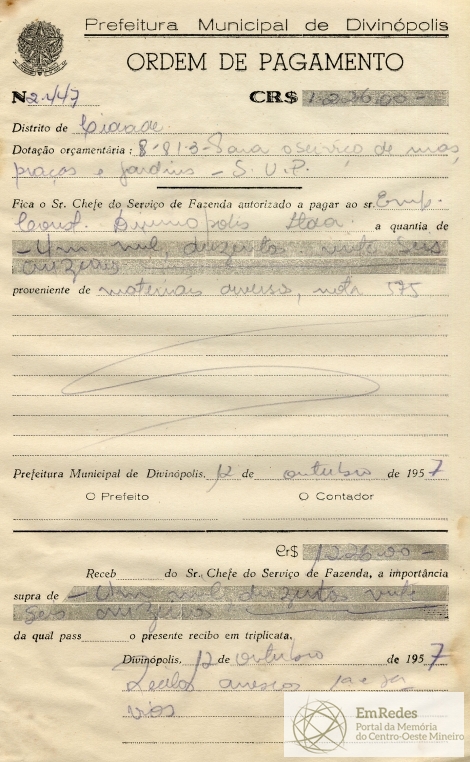 Prefeitura Municipal de Divinópolis
ORDEM DE PAGAMENTO
N 2.447 CR$ 1.226,00-
Distrito de Cidade.
Dotação orçamentária : 8-81-3-Para o serviço de ruas,
praças e jardins - S.U.P.
Fica o Sr. Chefe do Serviço de Fazenda autorizado a pagar ao sr. Emp.
Const. Divinópolis Ltda. a quantia de
- Um mil, duzentos vinte seis
cruzeiros
proveniente de materiais diversos, nota 575
Prefeitura Municipal de Divinópolis. 12 de outubro de 1957
O Prefeito O Contador
Cr$ 1.226,00-
Receb do Sr. Chefe do Serviço de Fazenda, a importância
supra de - Um mil duzentos vinte
seis cruzeiros
da qual pass o presente recibo em triplicata.
Divinópolis. 12 de outubro de 1957
EmRedes
Portal da Memória
do Centro-Oeste Mineiro